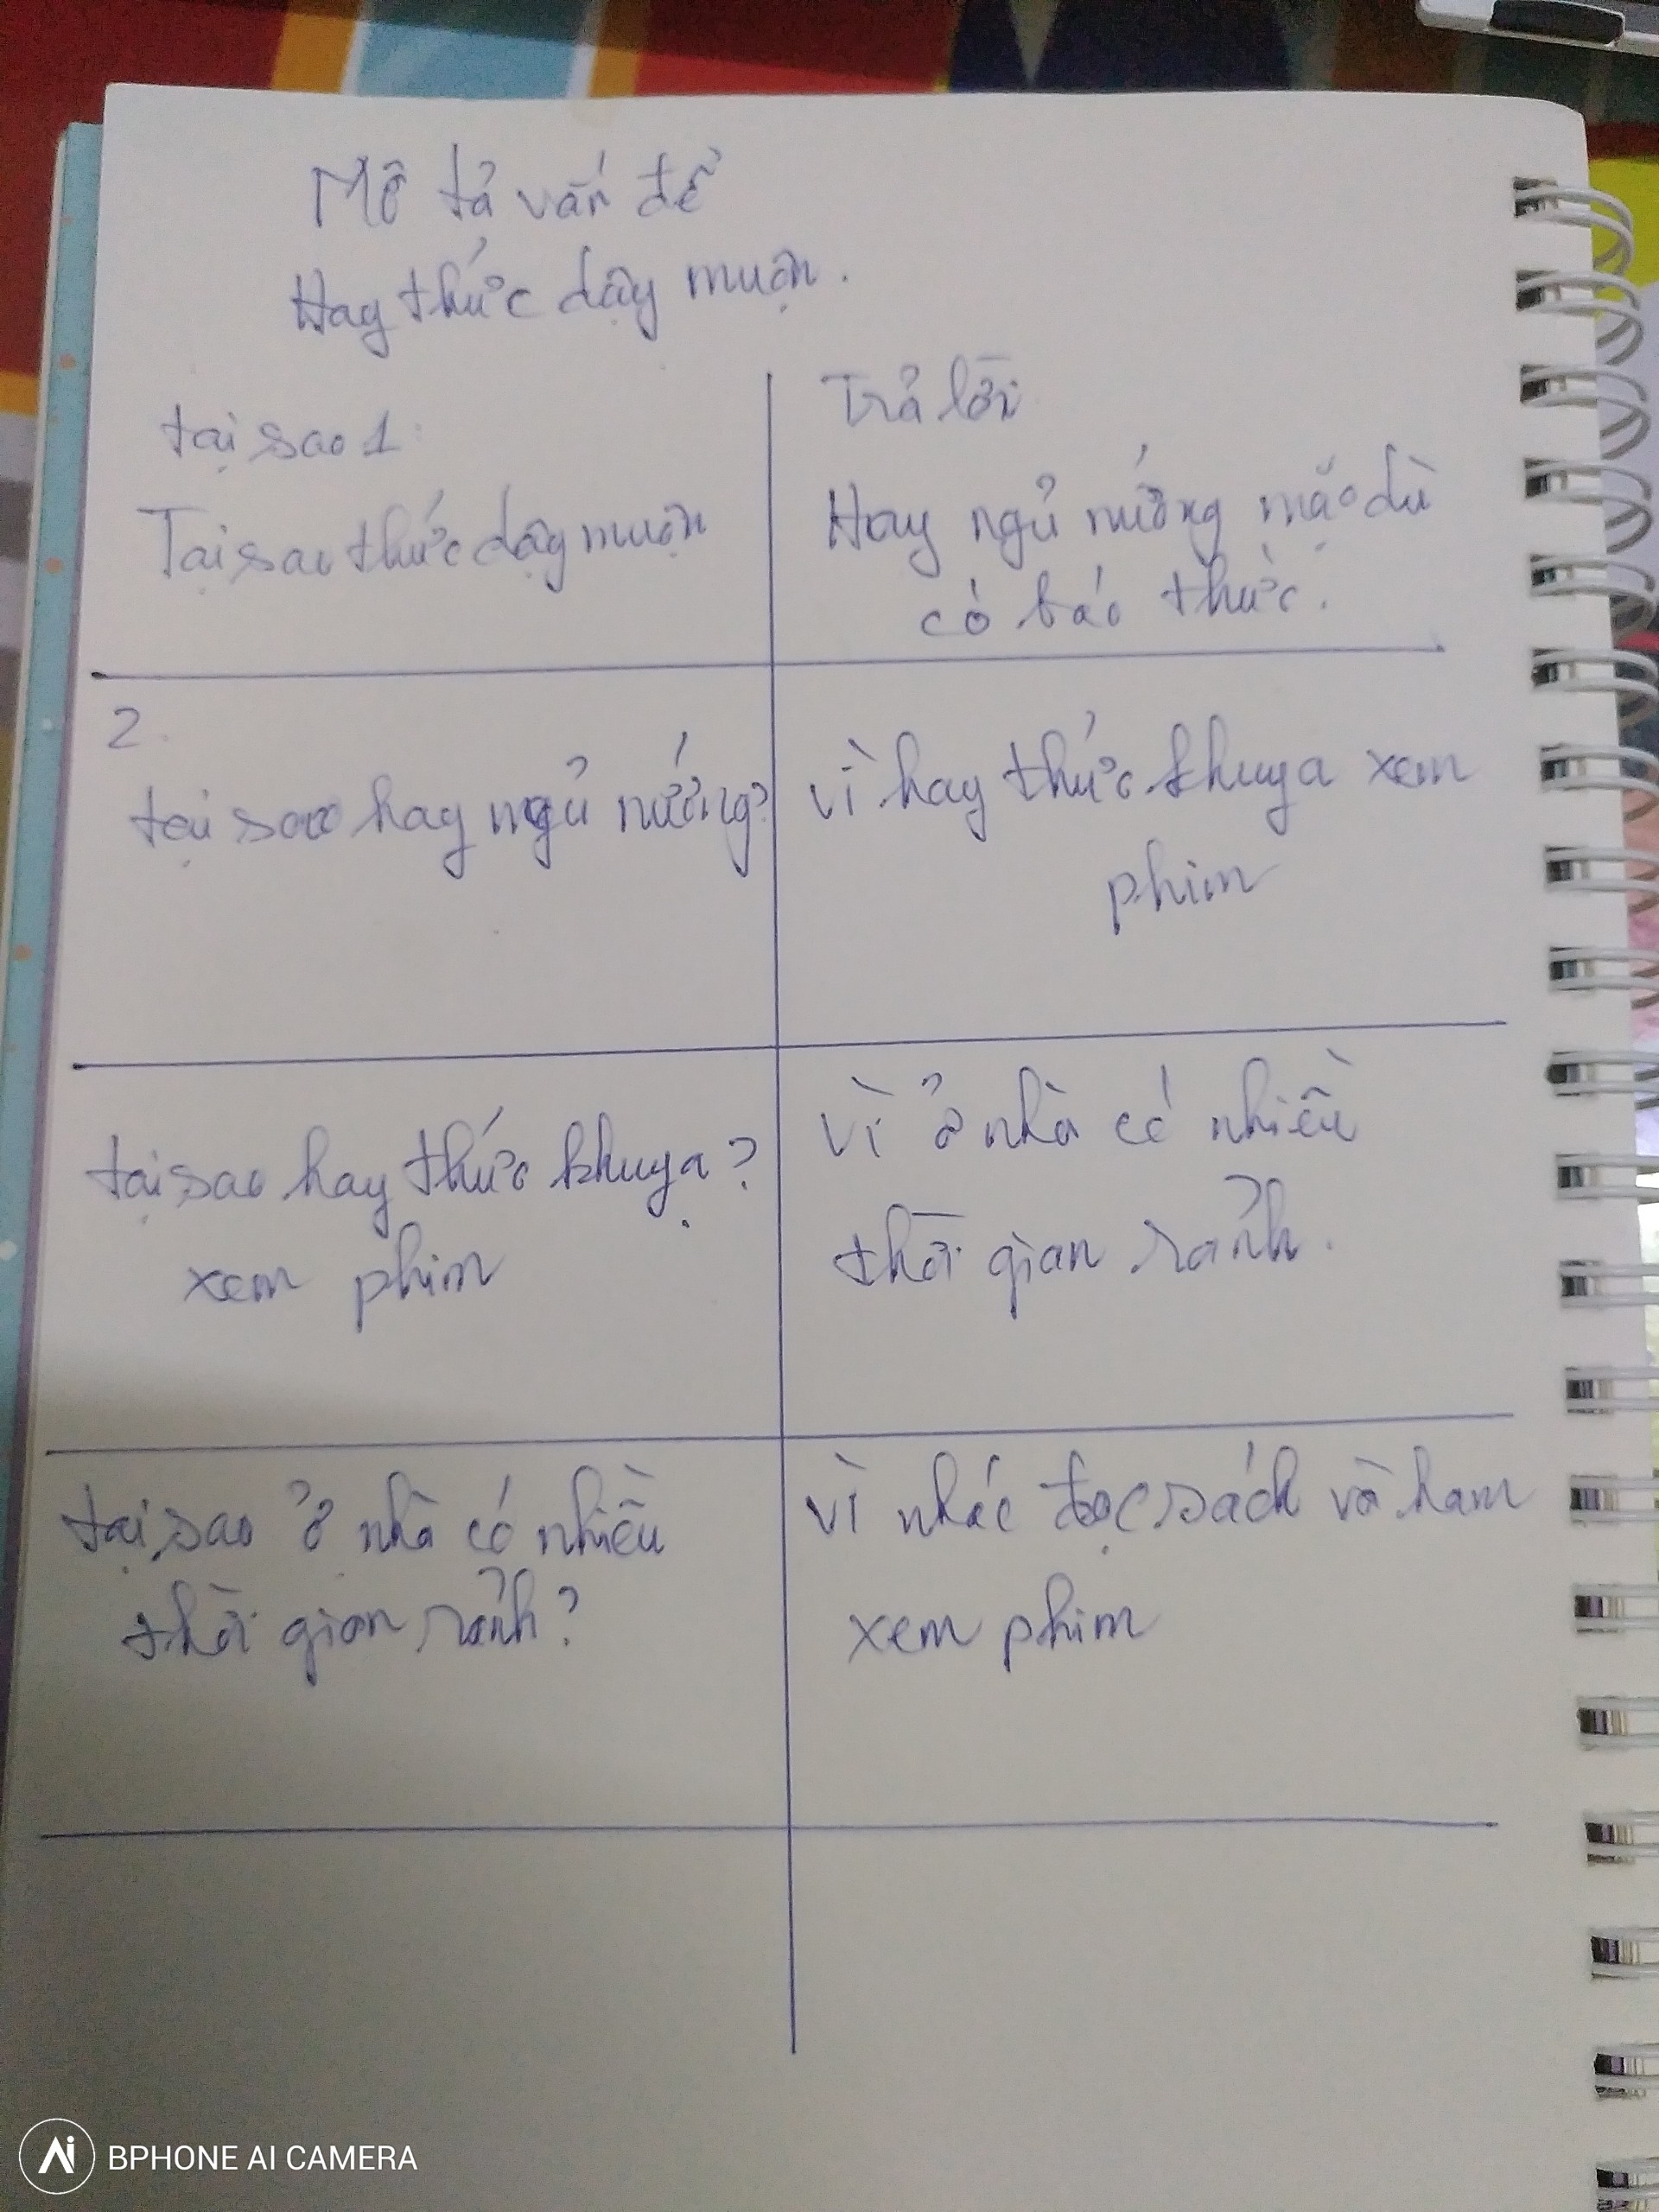 Mô tả vấn đề
Hay thức dậy muộn.
tại sao 1:
Tại sao thức dậy muộn
Trả lời
Hay ngủ nướng mặc dù
có báo thức.
2.
tại sao hay ngủ nướng?
vì hay thức khuya xem
phim
tại sao hay thức khuya?
xem phim
vì ở nhà có nhiều
thời gian rảnh.
tại sao ở nhà có nhiều
thời gian rảnh?
vì nhác đọc sách và ham
xem phim
Ai BPHONE AI CAMERA